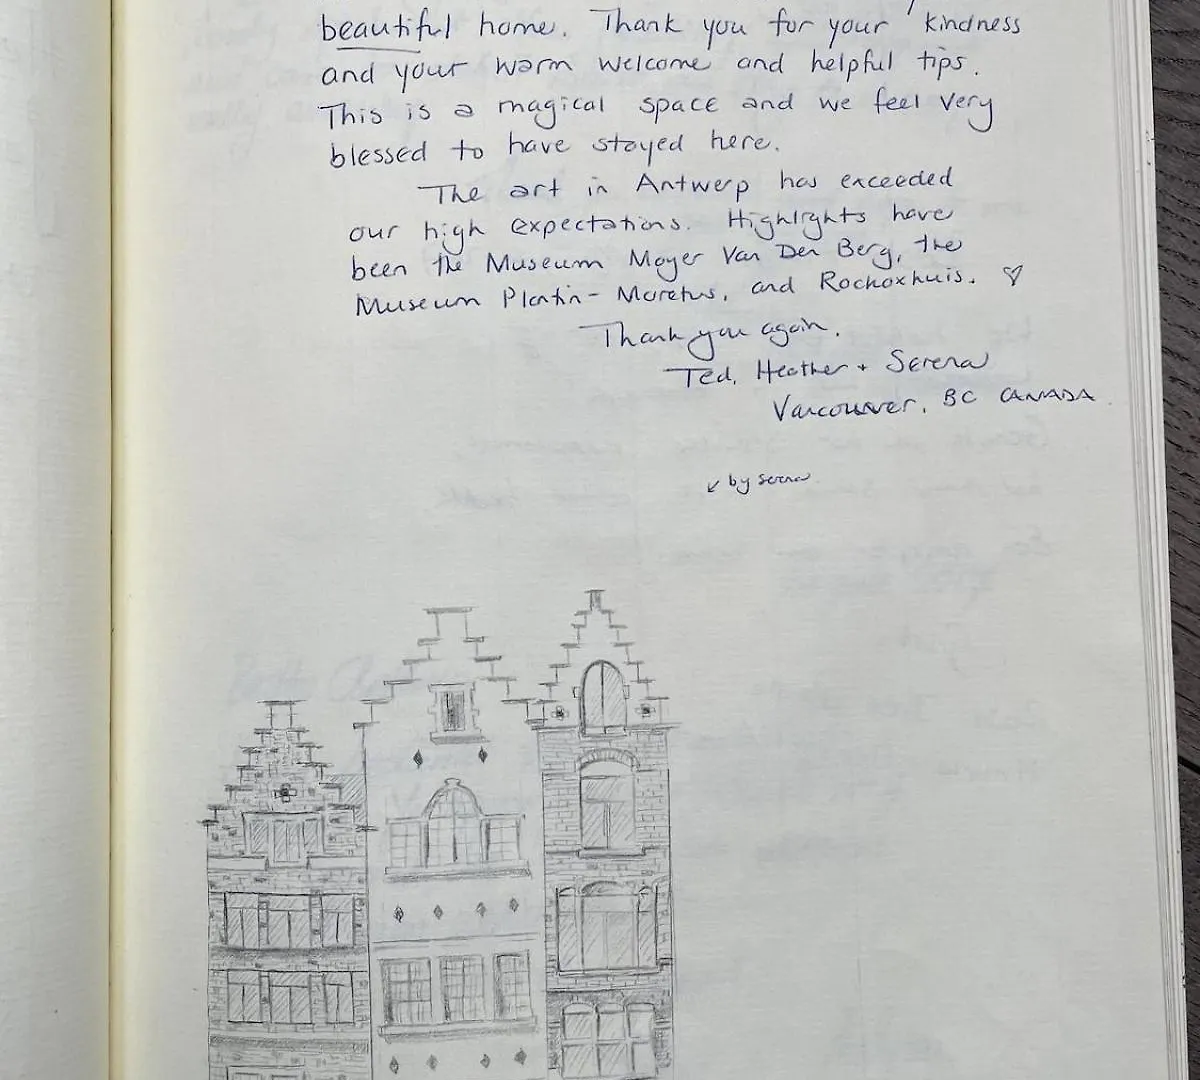 beautiful home. Thank you for your kindness
and your warm welcome and helpful tips.
This is a magical space and we feel very
blessed to have stayed here.
The art in Antwerp has exceeded
our high expectations. Highlights have
been the Museum Mayer Van Den Berg, the
Museum Plantin-Moretus, and Rockoxhuis. ♡
Thank you again.
Ted, Heather + Serena
Vancouver, BC CANADA.
↙ by Serena